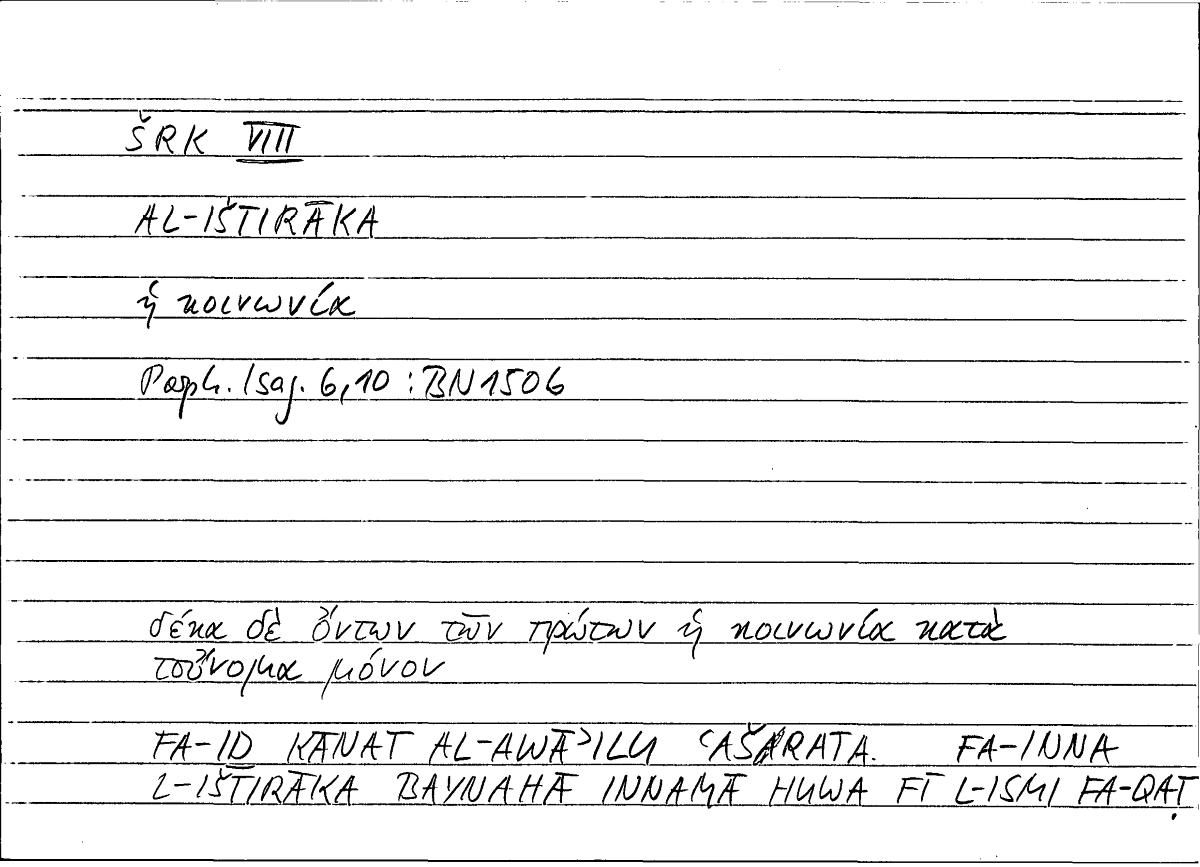 ŠRK VIII
AL-IŠTIRĀKA
ἡ κοινωνία
Porph. Isag. 6,10 : BN1506
δέκα δὲ ὄντων τῶν πρώτων ἡ κοινωνία κατὰ
τοὔνομα μόνον
FA-IḎ KĀNAT AL-AWĀʾILU ʿAŠARATA. FA-INNA
L-IŠTIRĀKA BAYNAHĀ INNAMĀ HUWA FĪ L-ISMI FA-QAṬ